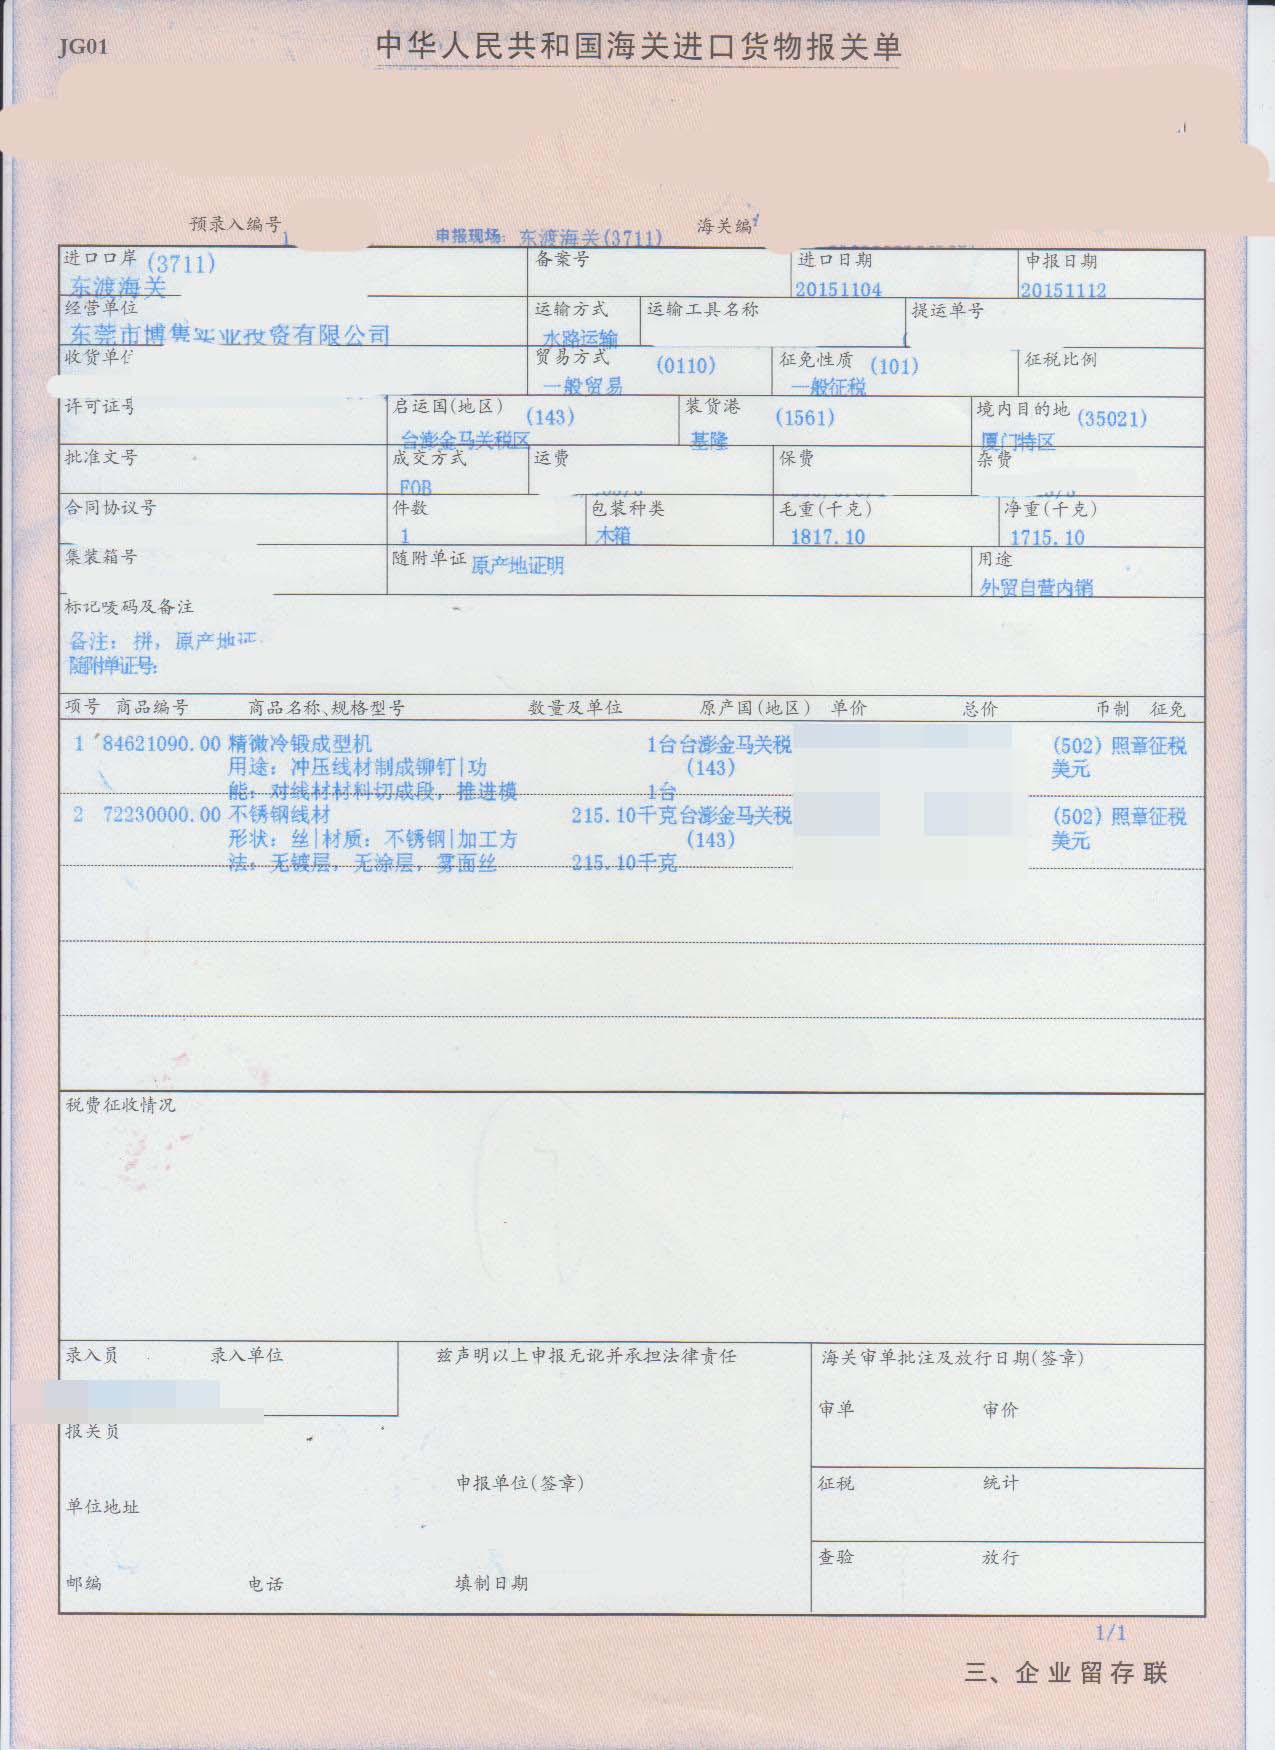 JG01
中华人民共和国海关进口货物报关单
预录入编号
申报现场: 东渡海关(3711)
海关编
进口口岸 (3711)
东渡海关
备案号
进口日期
20151104
申报日期
20151112
经营单位
东莞市博隽实业投资有限公司
运输方式
水路运输
运输工具名称
提运单号
收货单位
贸易方式 (0110)
一般贸易
征免性质 (101)
一般征税
征税比例
许可证号
启运国(地区) (143)
台澎金马关税区
装货港 (1561)
基隆
境内目的地 (35021)
厦门特区
批准文号
成交方式
FOB
运费
保费
杂费
合同协议号
件数
1
包装种类
木箱
毛重(千克)
1817.10
净重(千克)
1715.10
集装箱号
随附单证 原产地证明
用途
外贸自营内销
标记唛码及备注
备注: 拼, 原产地证
随附单证号:
项号 商品编号 商品名称、规格型号 数量及单位 原产国(地区) 单价 总价 币制 征免
1 84621090.00 精微冷锻成型机 1台 台澎金马关税 (502) 照章征税
用途: 冲压线材制成铆钉|功 (143) 美元
能: 对线材材料切成段, 推进模 1台
2 72230000.00 不锈钢线材 215.10千克 台澎金马关税 (502) 照章征税
形状: 丝|材质: 不锈钢|加工方 (143) 美元
法: 无镀层, 无涂层, 雾面丝 215.10千克
税费征收情况
录入员 录入单位
兹声明以上申报无讹并承担法律责任
海关审单批注及放行日期(签章)
审单 审价
报关员
申报单位(签章)
征税 统计
单位地址
查验 放行
邮编 电话 填制日期
1/1
三、企业留存联